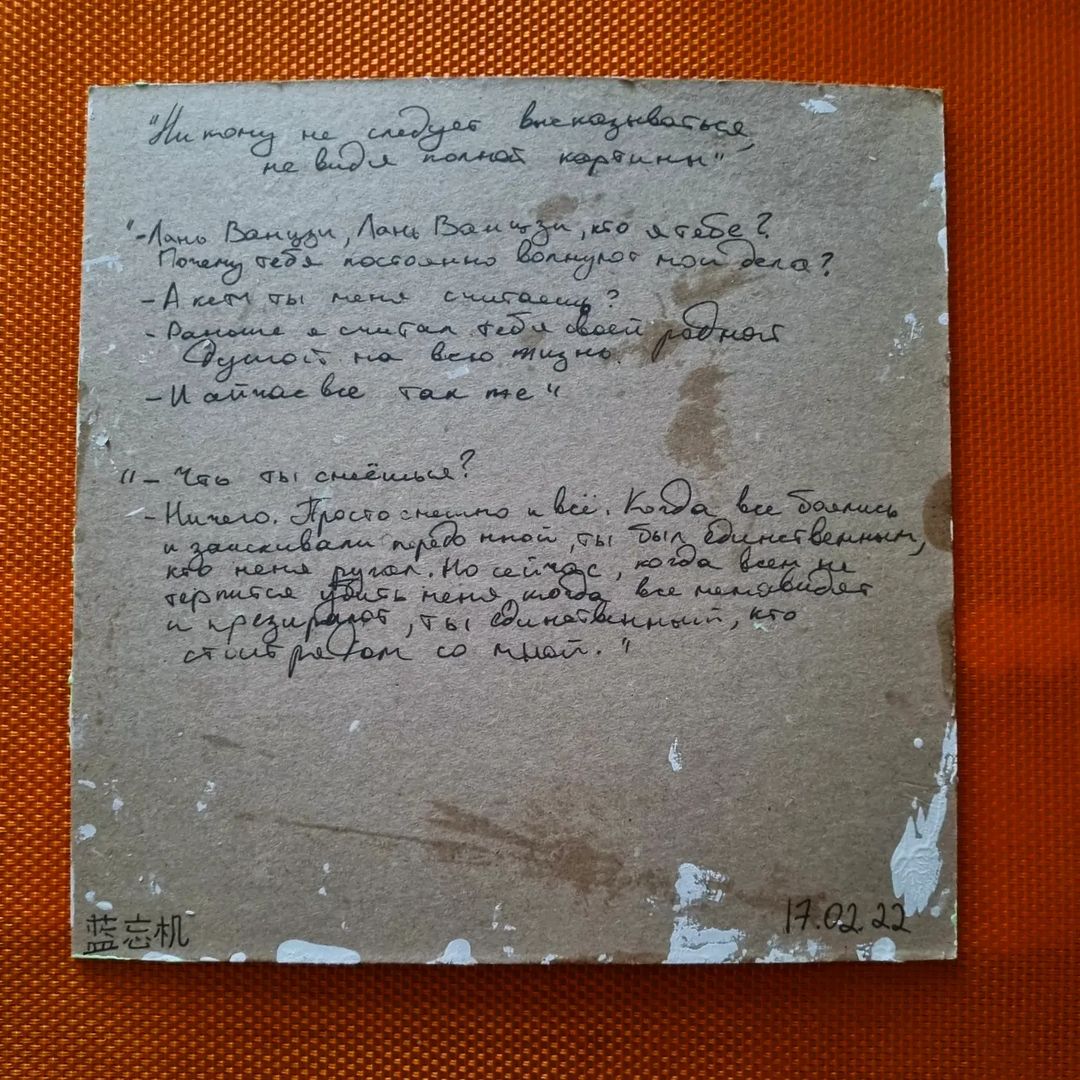 "Никому не следует высказываться,
не видя полной картины"
"-Лань Ванцзи, Лань Ванцзи, кто я тебе?
Почему тебя постоянно волнуют мои дела?
- А кем ты меня считаешь?
- Раньше я считал тебя своей родной
душой на всю жизнь.
- И сейчас все так же"
"- Что ты смеёшься?
- Ничего. Просто смешно и всё. Когда все боялись
и заискивали передо мной, ты был единственным,
кто меня ругал. Но сейчас, когда всем не
терпится убить меня, когда все ненавидят
и презирают, ты единственный, кто
стоит рядом со мной."
蓝忘机
17.02.22